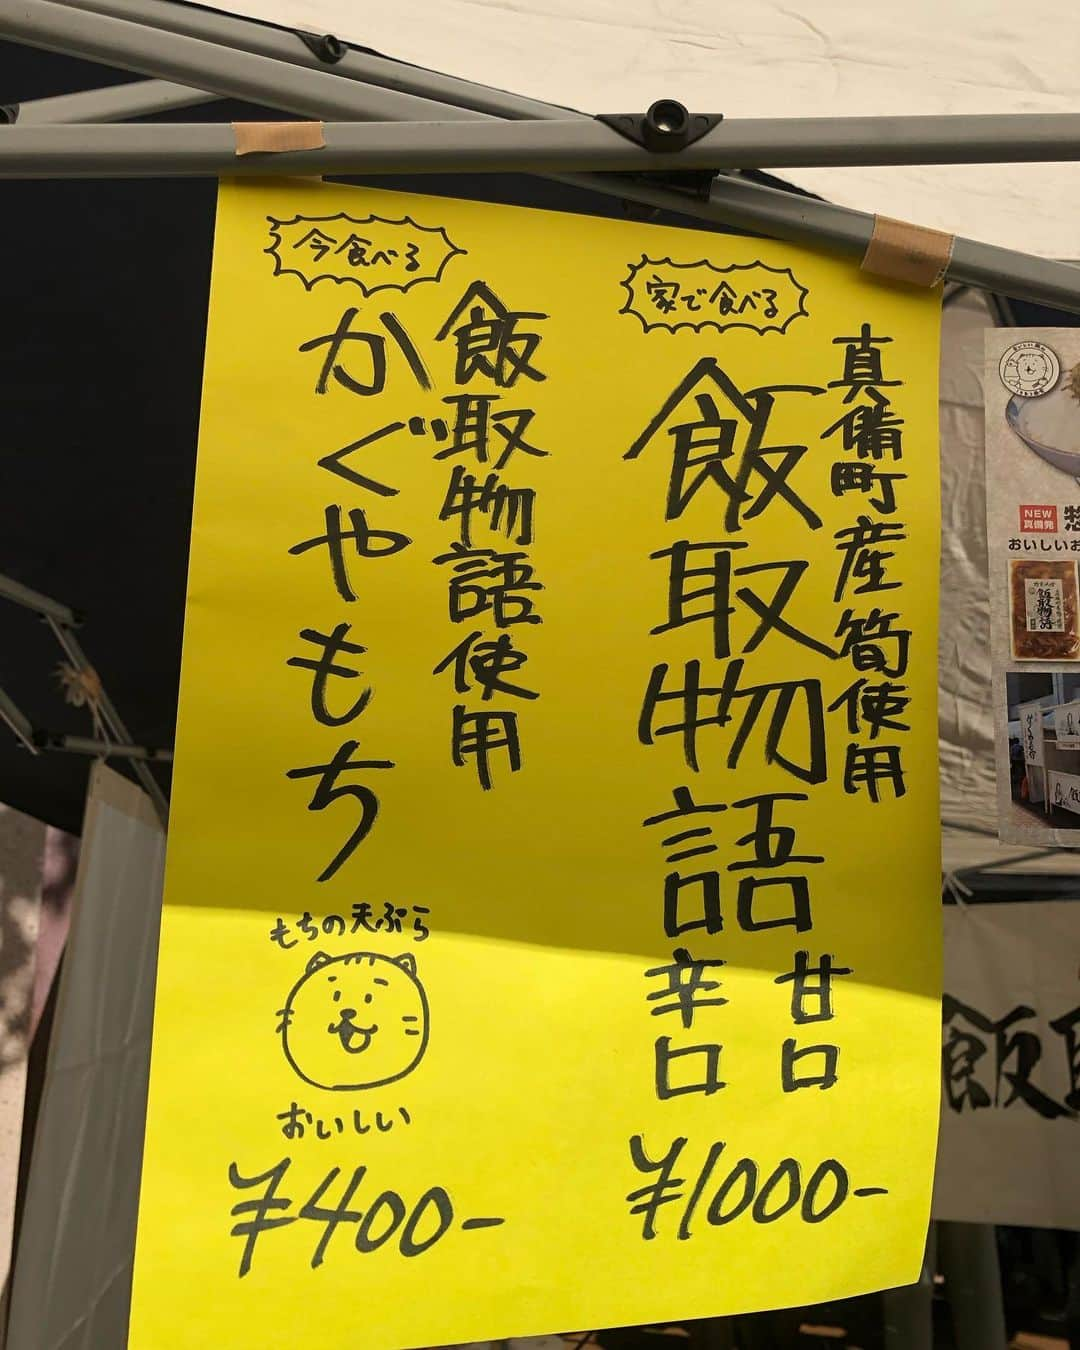 家で食べる
真備町産筍使用
飯取物語
甘口
辛口
¥1000-
今食べる
飯取物語使用
かぐやもち
もちの天ぷら
おいしい
¥400-
NEW
真備発
惣
おいしいお
飯取物語
飯取